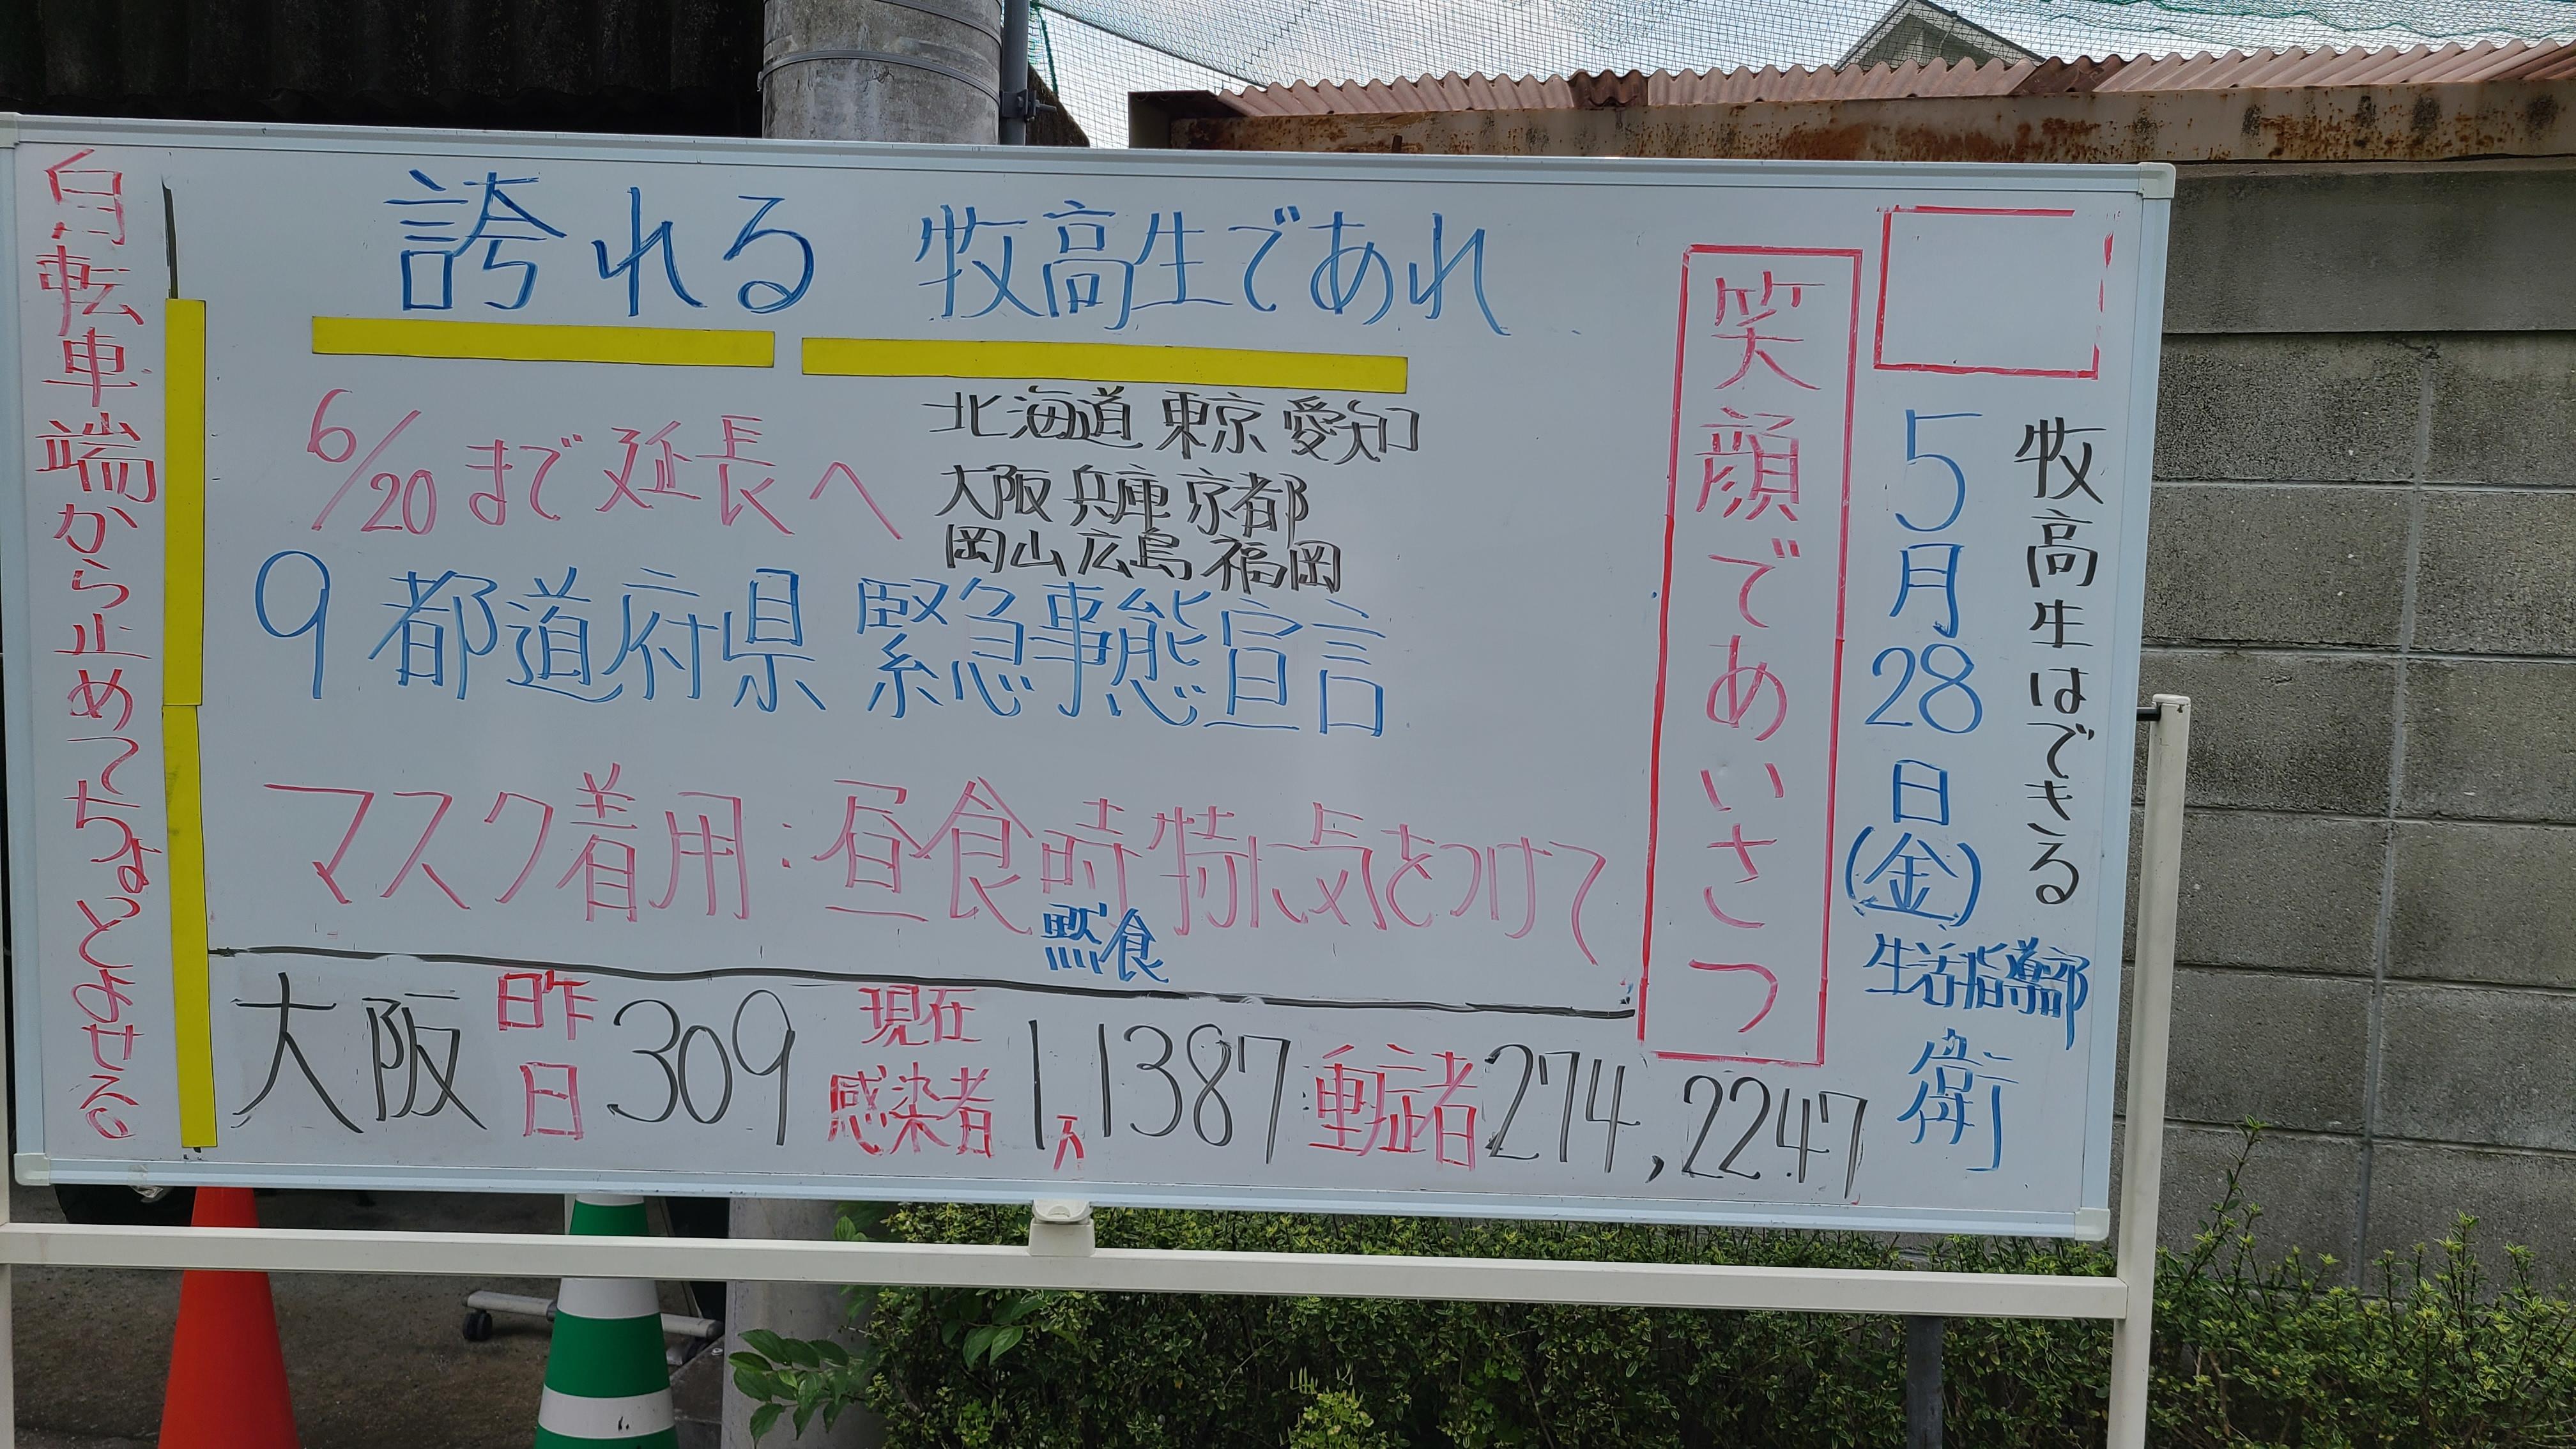 牧高生はできる
5月28日(金)
生活指導部
衛
笑顔であいさつ
誇れる 牧高生であれ
6/20まで延長へ
北海道 東京 愛知
大阪 兵庫 京都
岡山 広島 福岡
9都道府県 緊急事態宣言
マスク着用:昼食時特に気をつけて
黙食
大阪 昨日 309 現在感染者 1万1387 重症者 274,2247
自転車端から止めてちょっとよせる